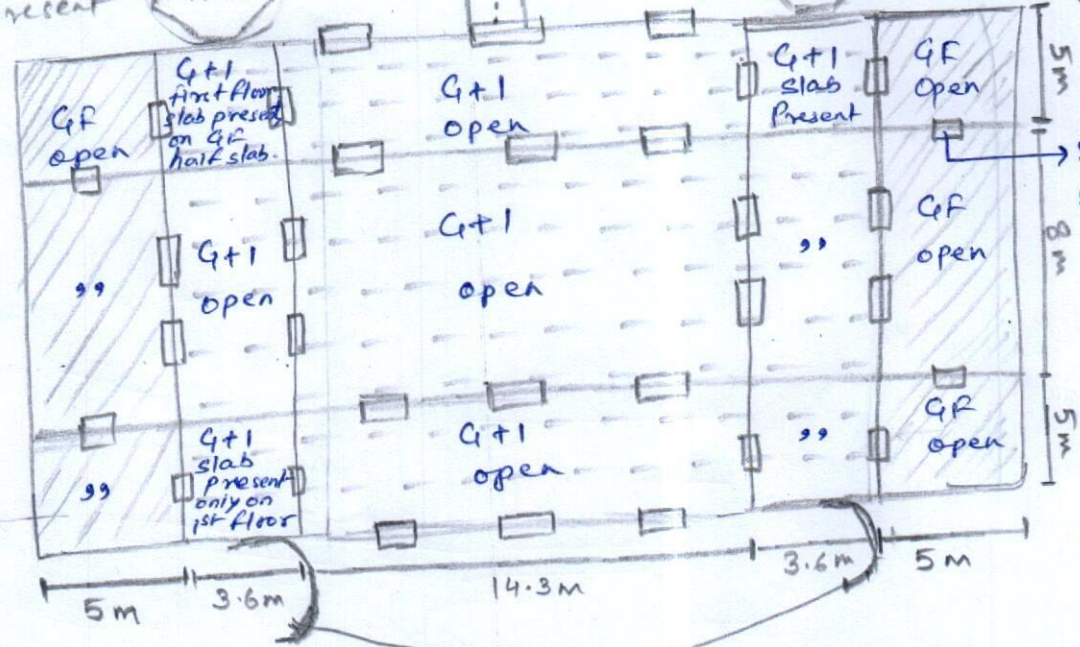 resent
G+1
first floor
slab present
on GF
half slab.
GF
open
G+1
open
G+1
slab
Present
GF
Open
5m
,,
G+1
open
G+1
open
,,
GF
open
8m
,,
G+1
slab
present
only on
1st floor
G+1
open
,,
GF
open
5m
5m
3.6m
14.3m
3.6m
5m